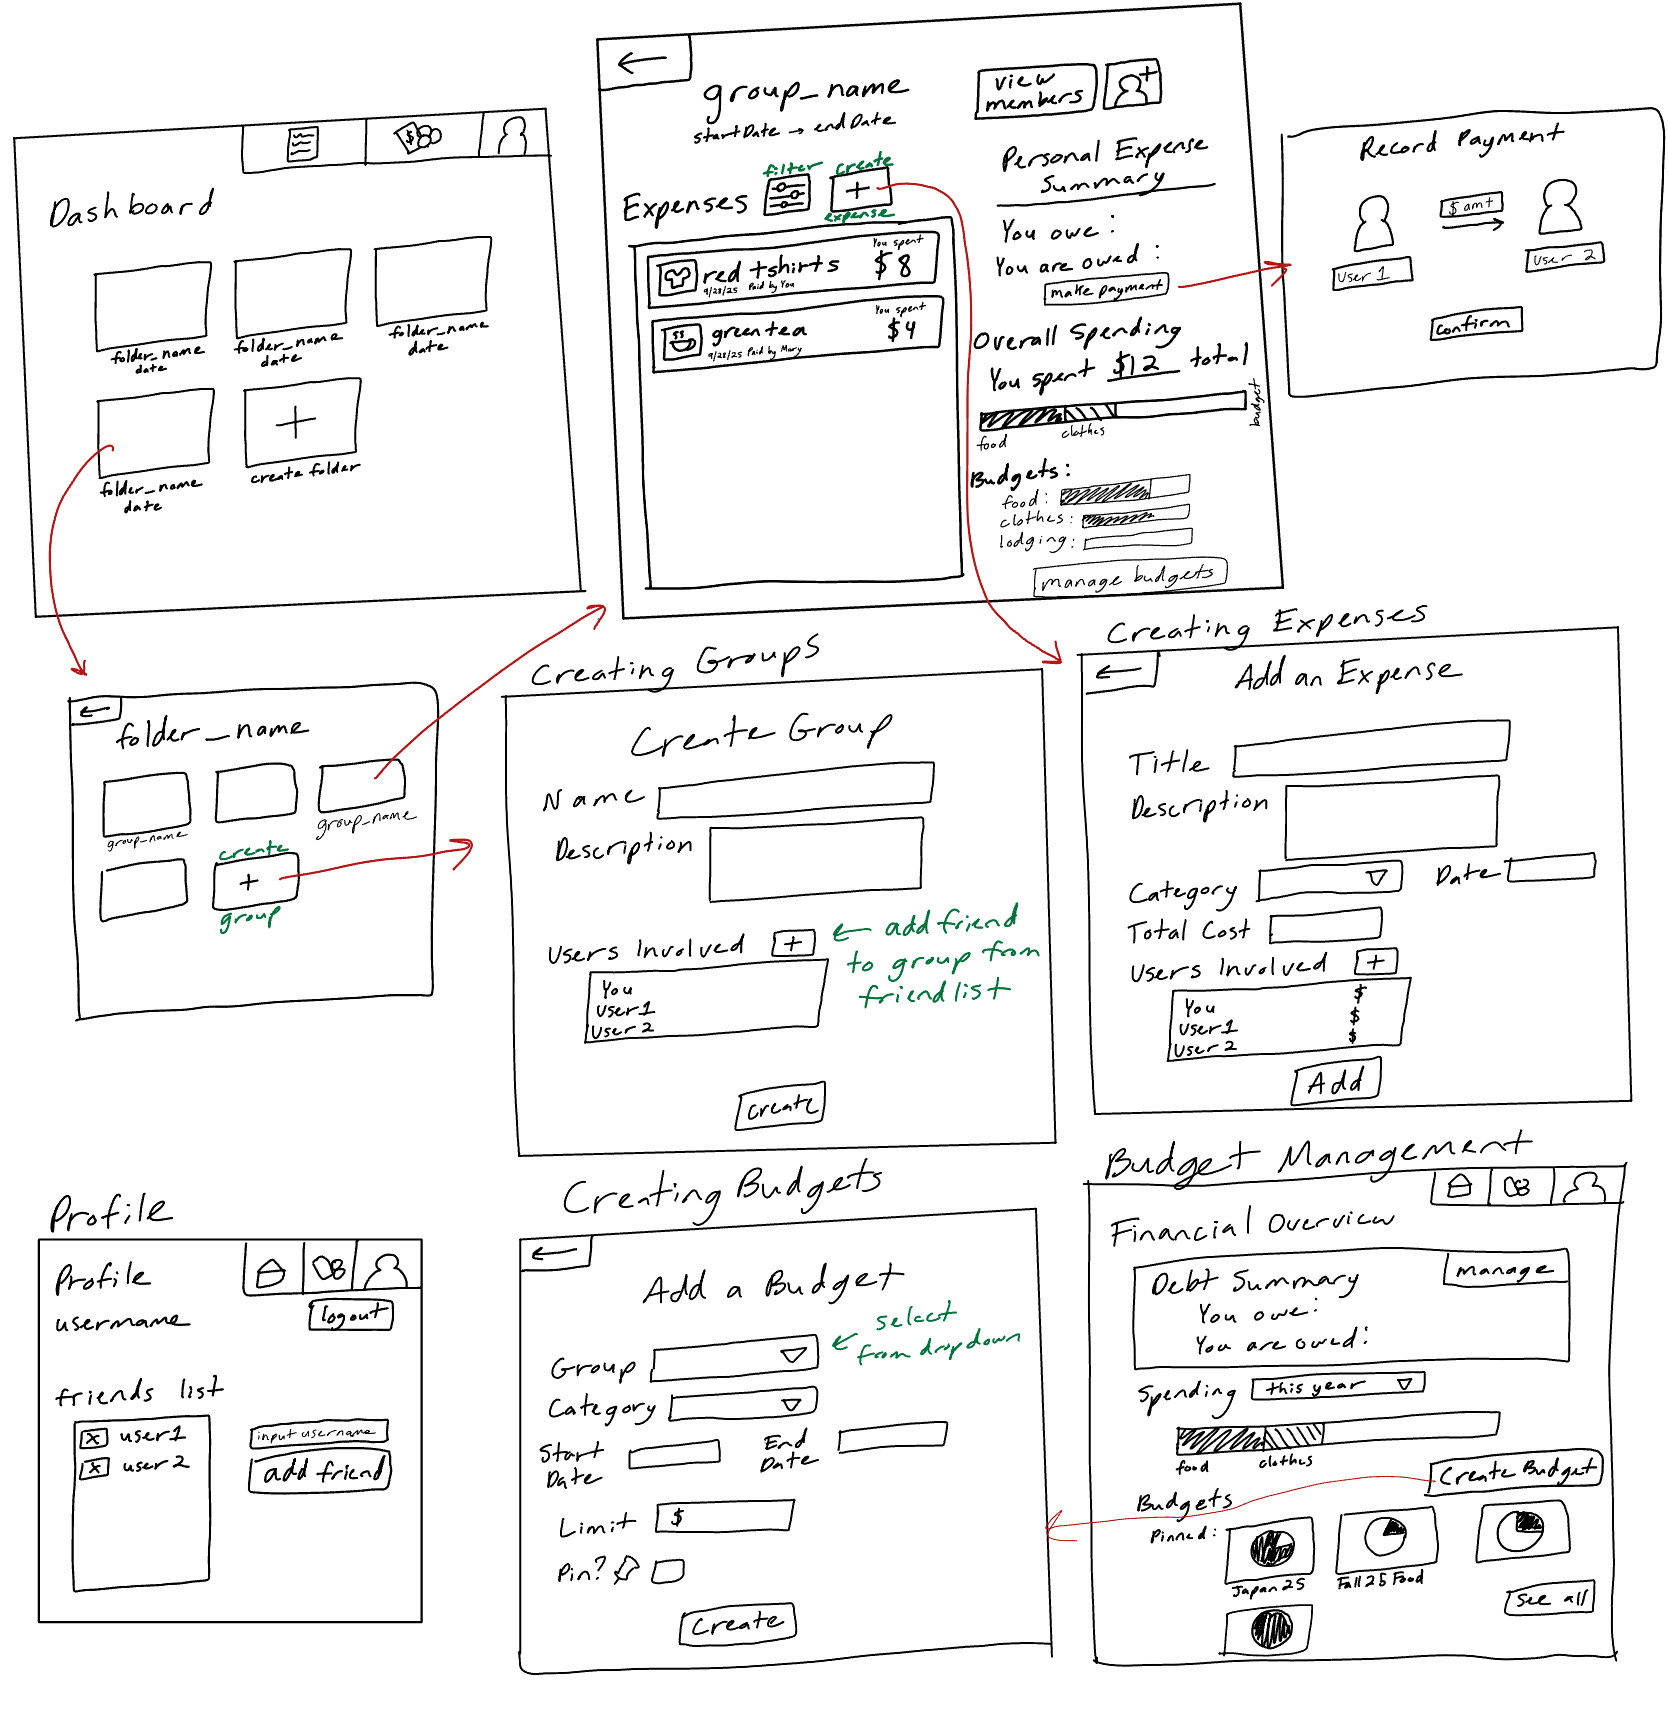 Dashboard
folder_name
date
folder_name
date
folder_name
date
folder_name
date
create folder
group_name
startDate → endDate
view
members
Expenses
filter
create
expense
red tshirts
9/28/25 Paid by You
You spent
$8
green tea
9/28/25 Paid by Mary
You spent
$4
Personal Expense
Summary
You owe:
You are owed:
make payment
Overall Spending
You spent $12 total
food
clothes
budget
Budgets:
food:
clothes:
lodging:
manage budgets
Record Payment
$ amt
User 1
User 2
Confirm
folder_name
group_name
group_name
create
+
group
Creating Groups
Create Group
Name
Description
Users Involved +
← add friend
to group from
friend list
You
User 1
User 2
create
Creating Expenses
Add an Expense
Title
Description
Category
Date
Total Cost
Users Involved +
You $
User 1 $
User 2 $
Add
Profile
Profile
username
logout
friends list
x user 1
x user 2
input username
add friend
Creating Budgets
Add a Budget
Group
← select
from dropdown
Category
Start
Date
End
Date
Limit $
Pin?
Create
Budget Management
Financial Overview
Debt Summary
manage
You owe:
You are owed:
Spending this year
food
clothes
Create Budget
Budgets
Pinned:
Japan 25
Fall 25 Food
See all